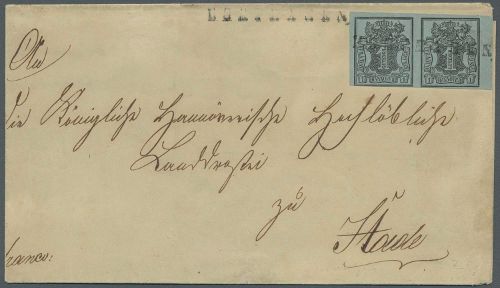 An
die Königliche Hannöverische Hochlöbliche
Landdrostei
zu
Stade
franco.
1 1